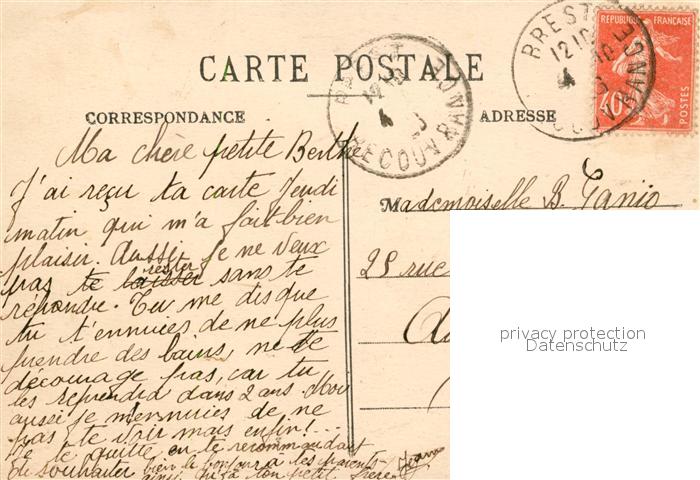 CARTE POSTALE
CORRESPONDANCE
ADRESSE
BREST
12 10
RECOUVRANCE
BREST
12 10
RECOUVRANCE
REPUBLIQUE FRANÇAISE
10
POSTES
Ma chère petite Berthe
J'ai reçu ta carte Jeudi
matin qui m'a fait bien
plaisir. Aussi je ne veux
pas te laisser rester sans te
répondre. Tu me dis que
tu t'ennuies de ne plus
prendre des bains, ne te
décourage pas, car tu
les reprendra dans 2 ans. Moi
aussi je m'ennuies de ne
pas te voir mais enfin!...
Je te quitte en te recommandant
de souhaiter bien le bonjour à tes parents
ainsi qu'à ton petit frère
Mademoiselle B. Tanio
25 rue
privacy protection
Datenschutz